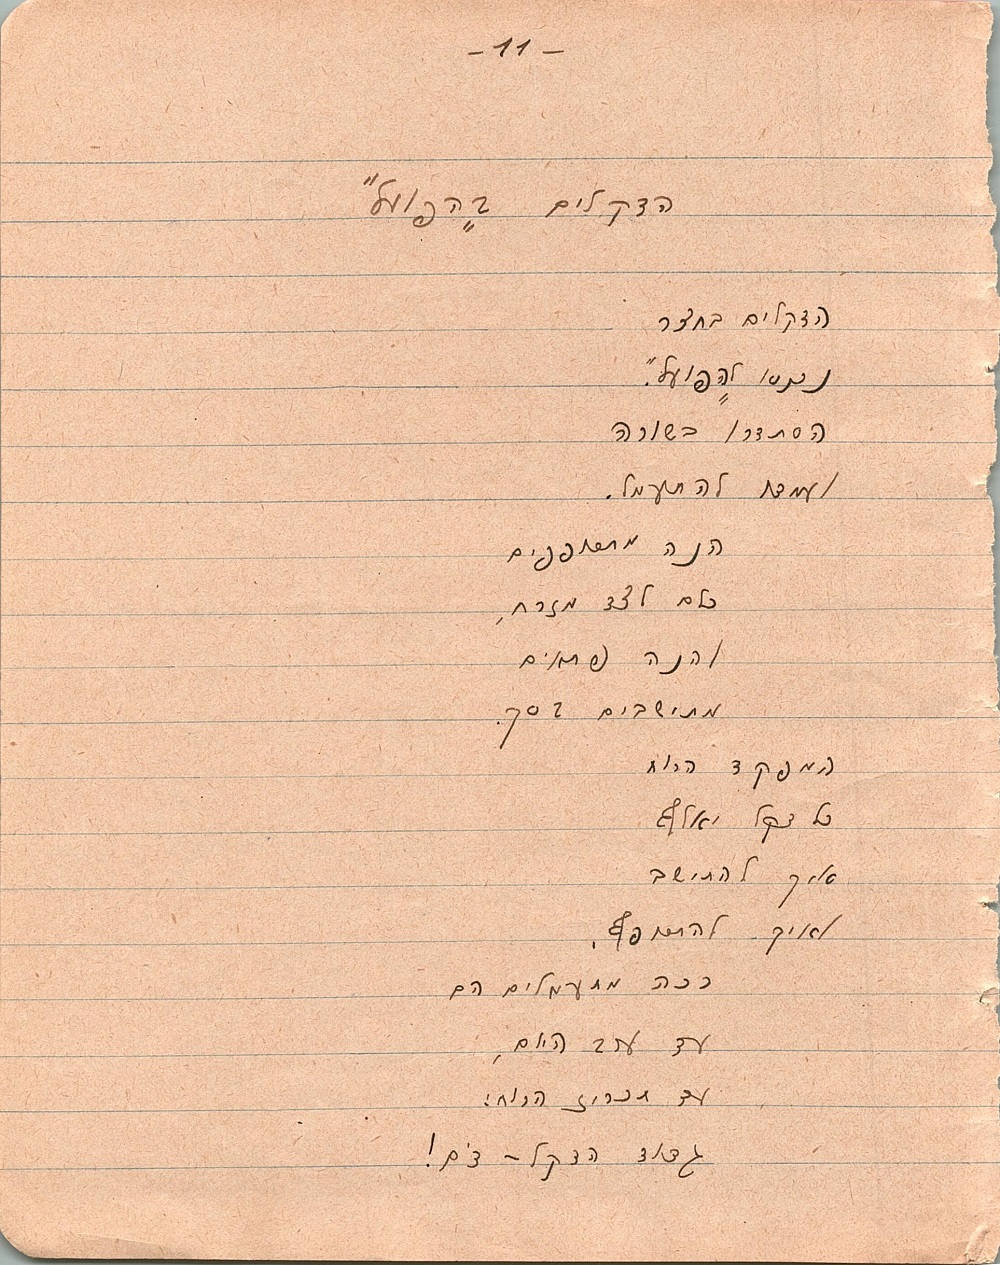 - 11 -
הדקלים ב„הפועל"
הדקלים בחצר
נכנסו ל„הפועל".
הסתדרו בשורה
ועמדו להתעמל.
הנה מתכופפים
כלם לצד מזרח,
והנה פתאים
מתישבים בסך.
המפקד הרוח
כל דקל יאלף
איך להתישב
ואיך להתכופף.
ככה מתעמלים הם
עד ערב היום,
עד תכריז הרוח:
גדוד הדקל – דֹם!